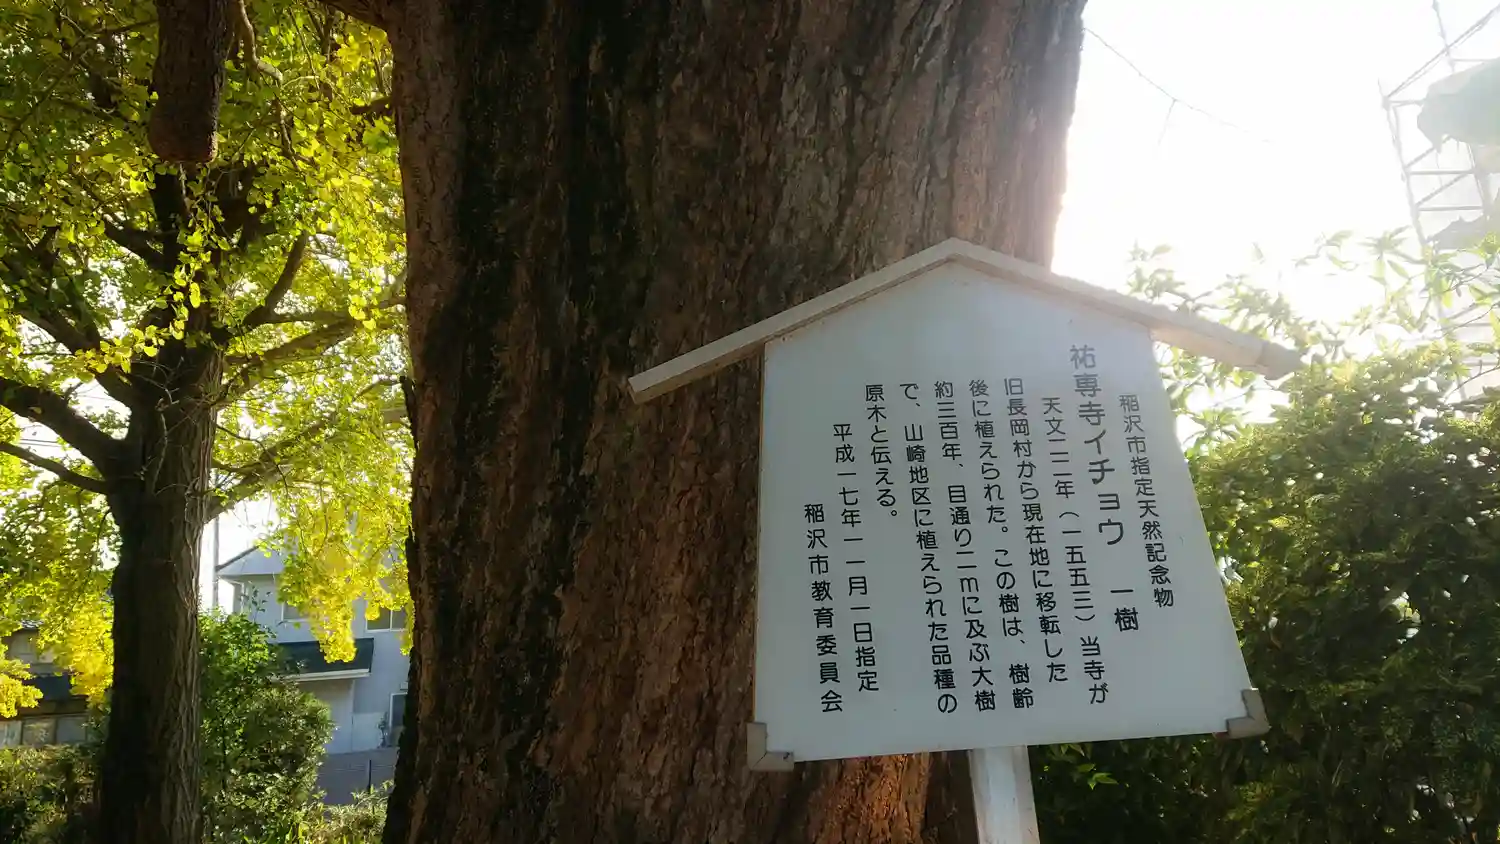 稲沢市指定天然記念物
祐専寺イチョウ　一樹
天文二二年（一五五三）当寺が
旧長岡村から現在地に移転した
後に植えられた。この樹は、樹齢
約三百年、目通り二mに及ぶ大樹
で、山崎地区に植えられた品種の
原木と伝える。
平成一七年一一月一日指定
稲沢市教育委員会